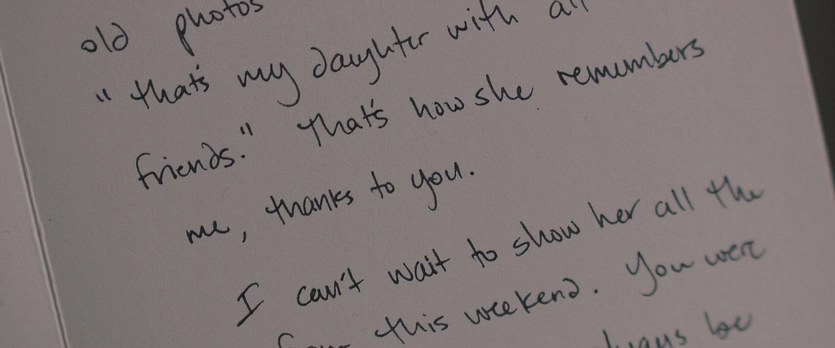 old photos
"that's my daughter with all
friends." That's how she remembers
me, thanks to you.
I can't wait to show her all the
this weekend. You were
be